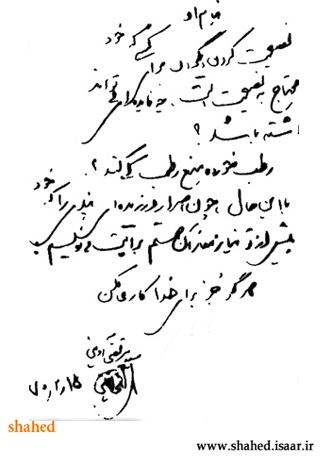 بنام او
نصیحت کردن دیگران برای کسی که خود
محتاج نصیحت است چه فایده‌ای می‌تواند
داشته باشد؟
رطب خورده منع رطب کی کند؟
با این حال چون اصرار ورزیده‌ای پندی را که خود
بیش از تو نیازمند آن هستم برایت می‌نویسم
هرگز جز برای خدا کار مکن
سید مرتضی آوینی
shahed
www.shahed.isaar.ir